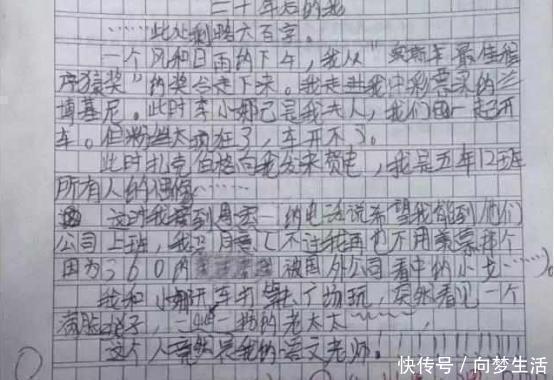 三十年后的我
……此处剩略六百字。
一个风和日雨的下午，我从"奥斯卡最佳程
序猿奖"的奖台走下来。我走进我中彩票买的兰
博基尼。此时李小娜已是我夫人，我们一起开
车。但粉丝太疯狂了，车开不了。
此时扎克伯格向我发来贺电，我是五年12班
所有人的偶像……
这时我接到的电话说希望我能到他们
公司上班，我月意，不过我再也不用那个
因为360的被国外公司看中的小
我和小娜开车打算去广场玩，突然看见一个
满脸子，的老太太
这个人竟然是我的语文老师！
快传号／向梦生活